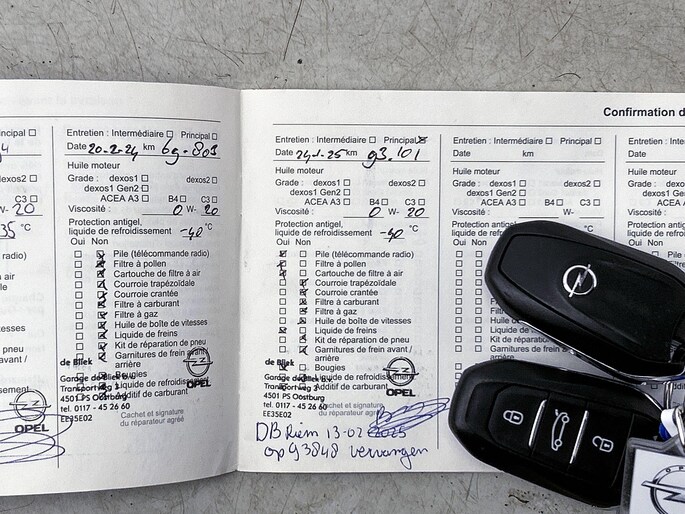 Confirmation d
ncipal
C3
W- 20
35 °C
radio)
à air
e
tesses
pneu
vant /
ssement
OPEL
Entretien : Intermédiaire Principal
Date 20-2-24 km 69.803
Huile moteur
Grade : dexos1 dexos2
dexos1 Gen2
ACEA A3 B4 C3
Viscosité : 0 W- 20
Protection antigel,
liquide de refroidissement -40 °C
Oui Non
Pile (télécommande radio)
Filtre à pollen
Cartouche de filtre à air
Courroie trapézoïdale
Courroie crantée
Filtre à carburant
Filtre à gaz
Huile de boîte de vitesses
Liquide de freins
Kit de réparation de pneu
Garnitures de frein avant /
arrière
Bougies
Liquide de refroidissement
Additif de carburant
de Bliek
Garage de Bliek B.V.
Transportweg 3
4501 PS Oostburg
tel. 0117 - 45 26 60
EE35E02
Cachet et signature
du réparateur agréé
OPEL
Entretien : Intermédiaire Principal
Date 24-1-25 km 93.101
Huile moteur
Grade : dexos1 dexos2
dexos1 Gen2
ACEA A3 B4 C3
Viscosité : 0 W- 20
Protection antigel,
liquide de refroidissement -40 °C
Oui Non
Pile (télécommande radio)
Filtre à pollen
Cartouche de filtre à air
Courroie trapézoïdale
Courroie crantée
Filtre à carburant
Filtre à gaz
Huile de boîte de vitesses
Liquide de freins
Kit de réparation de pneu
Garnitures de frein avant /
arrière
Bougies
Liquide de refroidissement
Additif de carburant
de Bliek
Garage de Bliek B.V.
Transportweg 3
4501 PS Oostburg
tel. 0117 - 45 26 60
EE35E02
Cachet et signature
du réparateur agréé
OPEL
DB Riem 13-02-2025
op 93848 vervangen
Entretien : Intermédiaire Principal
Date km
Huile moteur
Grade : dexos1 dexos2
dexos1 Gen2
ACEA A3 B4 C3
Viscosité : W-
Protection antigel,
liquide de
Oui Non
Pile
Filtre
Liquide
Kit de
Garnitures
arrière
Bougies
Liquide de refroidissement
Additif
Cachet
du
Entretien : Inter
Date
Huile moteur
Grade : dexos1
dexos1 Gen2
ACEA A3
Viscosité :
Protection antigel,